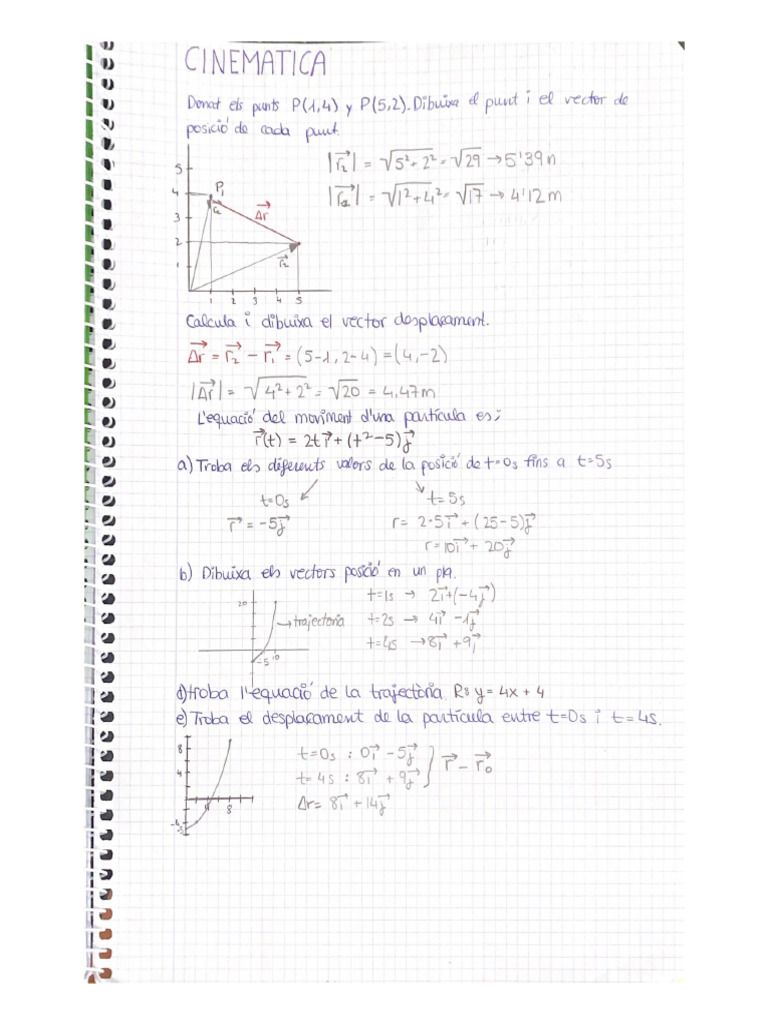 CINEMATICA
Donat els punts P(1,4) y P(5,2). Dibuixa el punt i el vector de
posició de cada punt.
|r₂⃗| = √5²+2² = √29 → 5'39 n
|r₂⃗| = √1²+4² = √17 → 4'12 m
5
4 P₁
3 r₂ Δr⃗
2
1 r₂⃗
1 2 3 4 5
Calcula i dibuixa el vector desplaçament.
Δr⃗ = r₂⃗ - r₁⃗ = (5-1, 2-4) = (4,-2)
|Δr⃗| = √4²+2² = √20 = 4.47m
L'equació del moviment d'una partícula es;
r⃗(t) = 2t i⃗ + (t²-5) j⃗
a) Troba els diferents valors de la posició de t=0s fins a t=5s
t=0s t=5s
r⃗ = -5j⃗ r = 2·5i⃗ + (25-5)j⃗
r=10i⃗ + 20j⃗
b) Dibuixa els vectors posició en un pla.
t=1s → 2i⃗+(-4j⃗)
20 → trajectoria t=2s → 4i⃗ -1j⃗
t=4s → 8i⃗ +9j⃗
-5 10
d) troba l'equació de la trajectòria R: y = 4x + 4
e) Troba el desplaçament de la partícula entre t=0s i t=4s.
8 t=0s : 0i⃗ -5j⃗
4 t=4s : 8i⃗ + 9j⃗ } r⃗ - r₀⃗
8 Δr= 8i⃗ +14j⃗
-4
-5